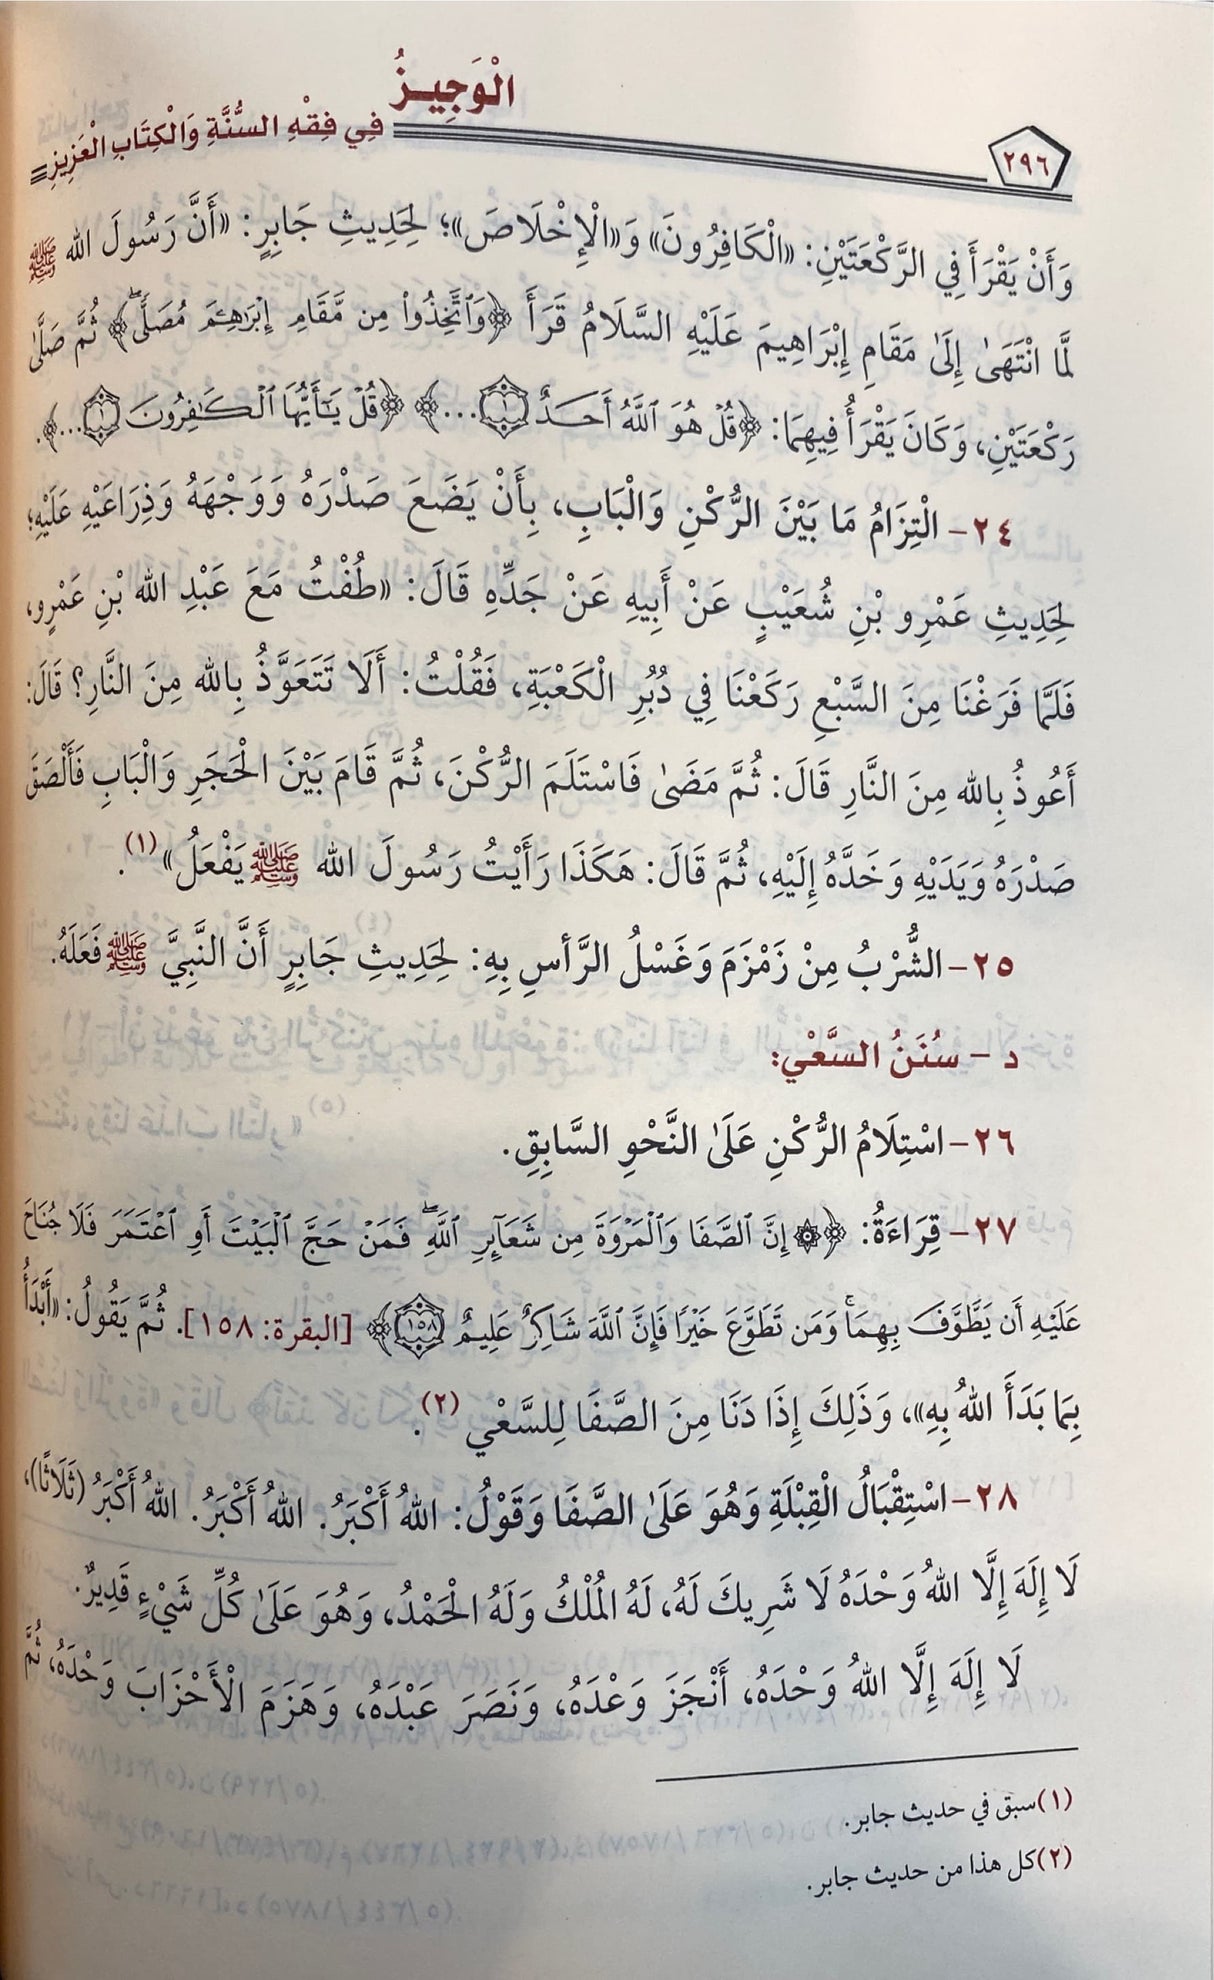 الْوَجِيزُ
فِي فِقْهِ السُّنَّةِ وَالْكِتَابِ الْعَزِيزِ
٢٩٦
وَأَنْ يَقْرَأَ فِي الرَّكْعَتَيْنِ: «الْكَافِرُونَ» وَ«الْإِخْلَاصَ»؛ لِحَدِيثِ جَابِرٍ: «أَنَّ رَسُولَ الله ﷺ
لَمَّا انْتَهَىٰ إِلَىٰ مَقَامِ إِبْرَاهِيمَ عَلَيْهِ السَّلَامُ قَرَأَ ﴿وَٱتَّخِذُواْ مِن مَّقَامِ إِبْرَٰهِـۧمَ مُصَلًّىۖ﴾ ثُمَّ صَلَّىٰ
رَكْعَتَيْنِ، وَكَانَ يَقْرَأُ فِيهِمَا: ﴿قُلْ هُوَ ٱللَّهُ أَحَدٌ ١...﴾ ﴿قُلْ يَـٰٓأَيُّهَا ٱلْكَـٰفِرُونَ ١...﴾.
٢٤- الْتِزَامُ مَا بَيْنَ الرُّكْنِ وَالْبَابِ، بِأَنْ يَضَعَ صَدْرَهُ وَوَجْهَهُ وَذِرَاعَيْهِ عَلَيْهِ؛
لِحَدِيثِ عَمْرِو بْنِ شُعَيْبٍ عَنْ أَبِيهِ عَنْ جَدِّهِ قَالَ: «طُفْتُ مَعَ عَبْدِ الله بْنِ عَمْرٍو،
فَلَمَّا فَرَغْنَا مِنَ السَّبْعِ رَكَعْنَا فِي دُبُرِ الْكَعْبَةِ، فَقُلْتُ: أَلَا تَتَعَوَّذُ بِالله مِنَ النَّارِ؟ قَالَ:
أَعُوذُ بِالله مِنَ النَّارِ قَالَ: ثُمَّ مَضَىٰ فَاسْتَلَمَ الرُّكْنَ، ثُمَّ قَامَ بَيْنَ الْحَجَرِ وَالْبَابِ فَأَلْصَقَ
صَدْرَهُ وَيَدَيْهِ وَخَدَّهُ إِلَيْهِ، ثُمَّ قَالَ: هَكَذَا رَأَيْتُ رَسُولَ الله ﷺ يَفْعَلُ»(١).
٢٥- الشُّرْبُ مِنْ زَمْزَمَ وَغَسْلُ الرَّأسِ بِهِ: لِحَدِيثِ جَابِرٍ أَنَّ النَّبِيَّ ﷺ فَعَلَهُ.
د - سُنَنُ السَّعْيِ:
٢٦- اسْتِلَامُ الرُّكْنِ عَلَىٰ النَّحْوِ السَّابِقِ.
٢٧- قِرَاءَةُ: ﴿۞ إِنَّ ٱلصَّفَا وَٱلْمَرْوَةَ مِن شَعَآئِرِ ٱللَّهِۖ فَمَنْ حَجَّ ٱلْبَيْتَ أَوِ ٱعْتَمَرَ فَلَا جُنَاحَ
عَلَيْهِ أَن يَطَّوَّفَ بِهِمَاۚ وَمَن تَطَوَّعَ خَيْرًا فَإِنَّ ٱللَّهَ شَاكِرٌ عَلِيمٌ ١٥٨﴾ [البقرة: ١٥٨]. ثُمَّ يَقُولُ: «أَبْدَأُ
بِمَا بَدَأَ اللهُ بِهِ»، وَذَلِكَ إِذَا دَنَا مِنَ الصَّفَا لِلسَّعْيِ (٢).
٢٨- اسْتِقْبَالُ الْقِبْلَةِ وَهُوَ عَلَىٰ الصَّفَا وَقَوْلُ: اللهُ أَكْبَرُ. اللهُ أَكْبَرُ. اللهُ أَكْبَرُ (ثَلَاثًا)،
لَا إِلَهَ إِلَّا اللهُ وَحْدَهُ لَا شَرِيكَ لَهُ، لَهُ الْمُلْكُ وَلَهُ الْحَمْدُ، وَهُوَ عَلَىٰ كُلِّ شَيْءٍ قَدِيرٌ.
لَا إِلَهَ إِلَّا اللهُ وَحْدَهُ، أَنْجَزَ وَعْدَهُ، وَنَصَرَ عَبْدَهُ، وَهَزَمَ الْأَحْزَابَ وَحْدَهُ، ثُمَّ
(١) سبق في حديث جابر.
(٢) كل هذا من حديث جابر.